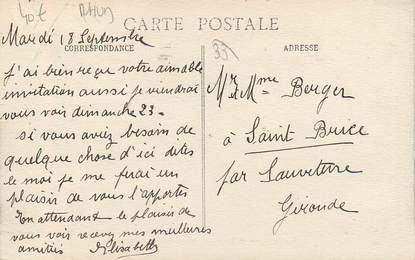 40€
CARTE POSTALE
Mardi 18 Septembre
CORRESPONDANCE
ADRESSE
j'ai bien reçu votre aimable
invitation aussi je viendrai
vous voir dimanche 23 -
si vous aviez besoin de
quelque chose d'ici dites
le moi je me ferai un
plaisir de vous l'apporter
En attendant le plaisir de
vous voir recevez mes meilleures
amitiés Elisabeth
Mr et Mme Berger
à Saint Brice
par Sauveterre
Gironde